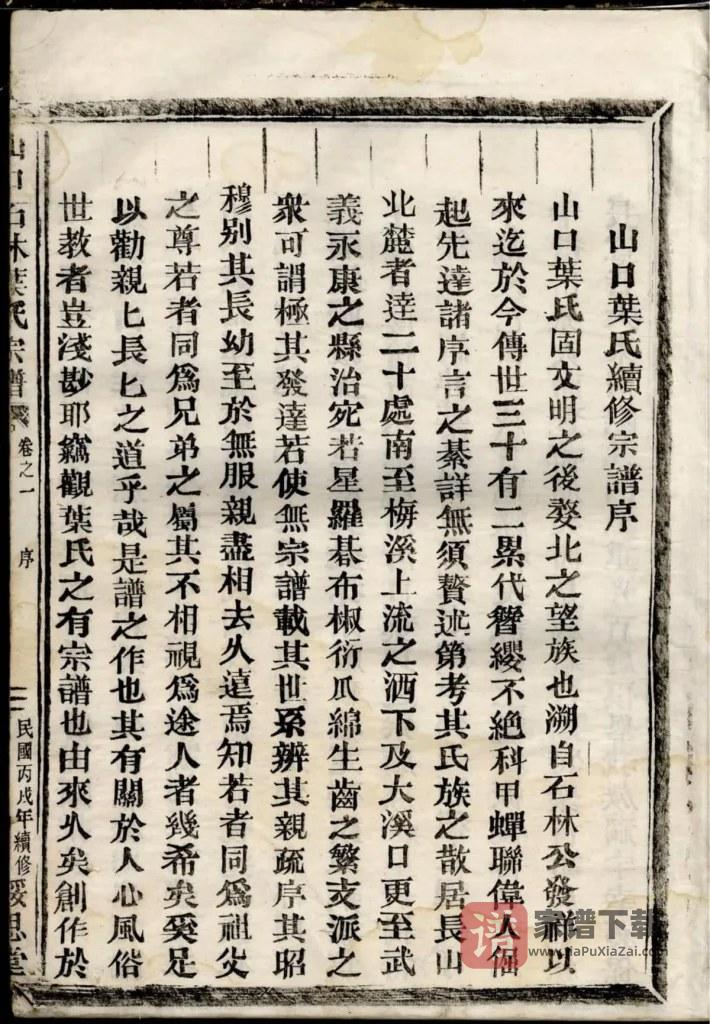 山口葉氏續修宗譜序
山口葉氏固文明之後婺北之望族也溯自石林公發祥以
來迄於今傳世三十有二累代簪纓不絕科甲蟬聯偉人倔
起先達諸序言之綦詳無須贅述第考其氏族之散居長山
北麓者達二十處南至梅溪上流之洒下及大溪口更至武
義永康之縣治宛若星羅碁布椒衍瓜綿生齒之繁支派之
衆可謂極其發達若使無宗譜載其世系辨其親疏序其昭
穆别其長幼至於無服親盡相去乆遠焉知若者同爲祖父
之尊若者同爲兄弟之屬其不相視爲途人者幾希矣奚足
以勸親匕長匕之道乎哉是譜之作也其有關於人心風俗
世教者豈淺尠耶竊觀葉氏之有宗譜也由來乆矣創作於
山口石林葉氏宗譜 卷之一 序 二 民國丙戌年續修 思堂
家谱下载
www.JiaPuXiaZai.com
谱